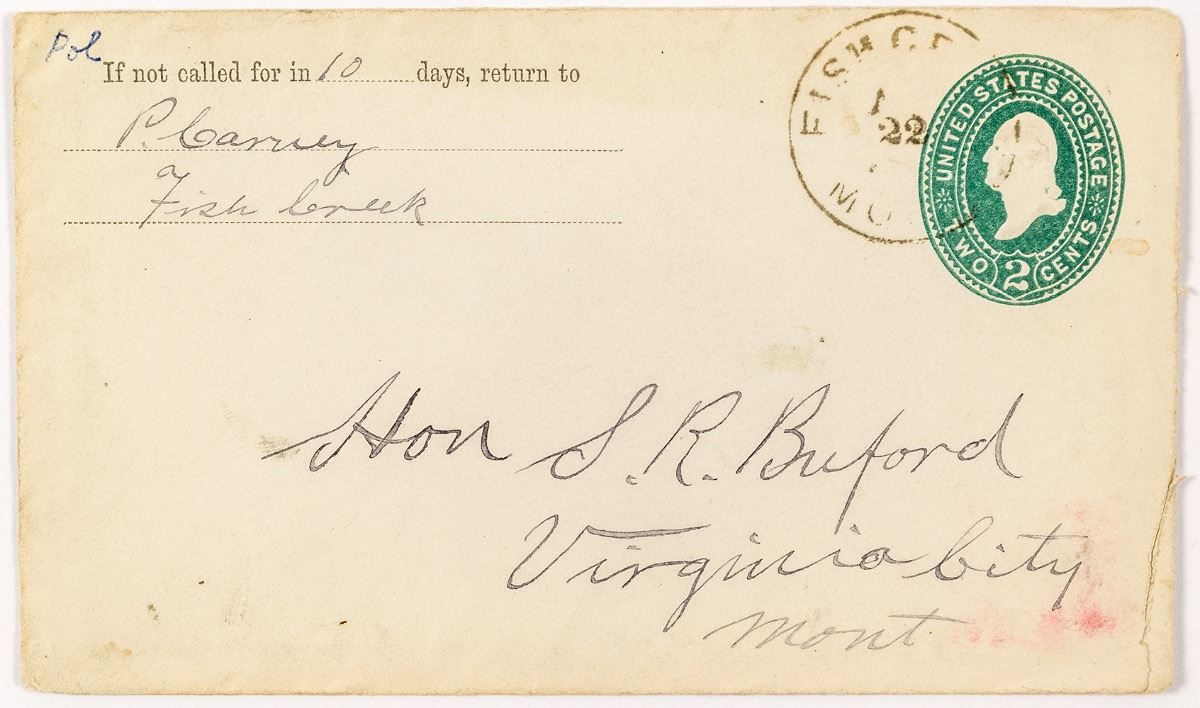 Pol
If not called for in 10 days, return to
P. Carney
Fish Creek
FISH CR
22
MO
UNITED STATES POSTAGE
TWO 2 CENTS
Hon S. R. Buford
Virginia City
Mont